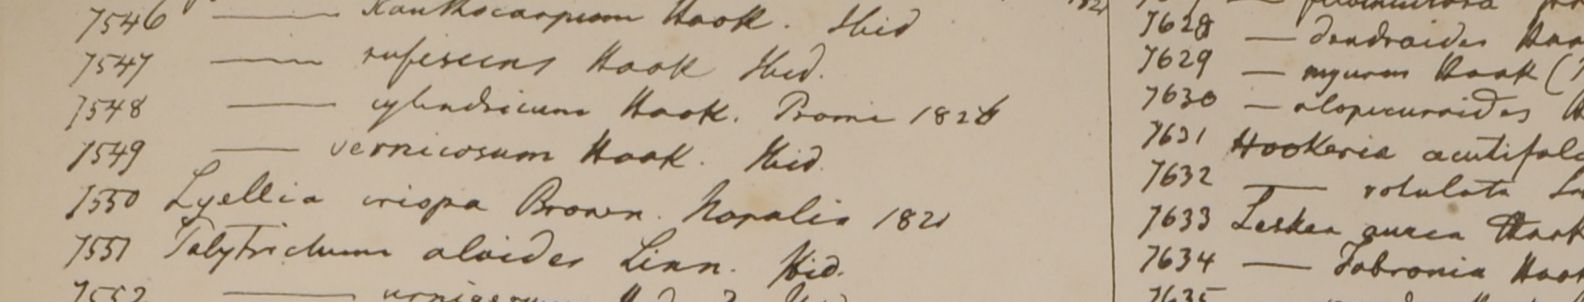 7546 —— Xanthocarpum Hook. Ibid
7547 —— rufescens Hook Ibid.
7548 —— cylindricum Hook. Prome 1826
7549 —— vernicosum Hook. Ibid
7550 Lyellia crispa Brown. Napalia 1821
7551 Polytrichum aloides Linn. Ibid.
7552 ——
7628 — dendroides
7629 — myurum Hook (
7630 — alopecuroides
7631 Hookeria acutifol
7632 —— rotulata
7633 Leskea aurea Hook
7634 —— Fabronia Hook
7635